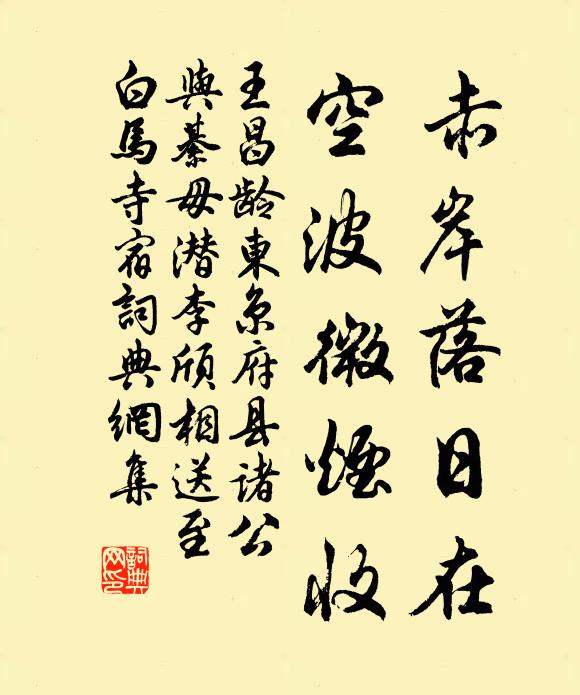 赤岸落日在
空波微煙收
王昌龄東京府县诸公
與綦毋潜李颀相送至
白馬寺宿詞典網集
詞典
网印